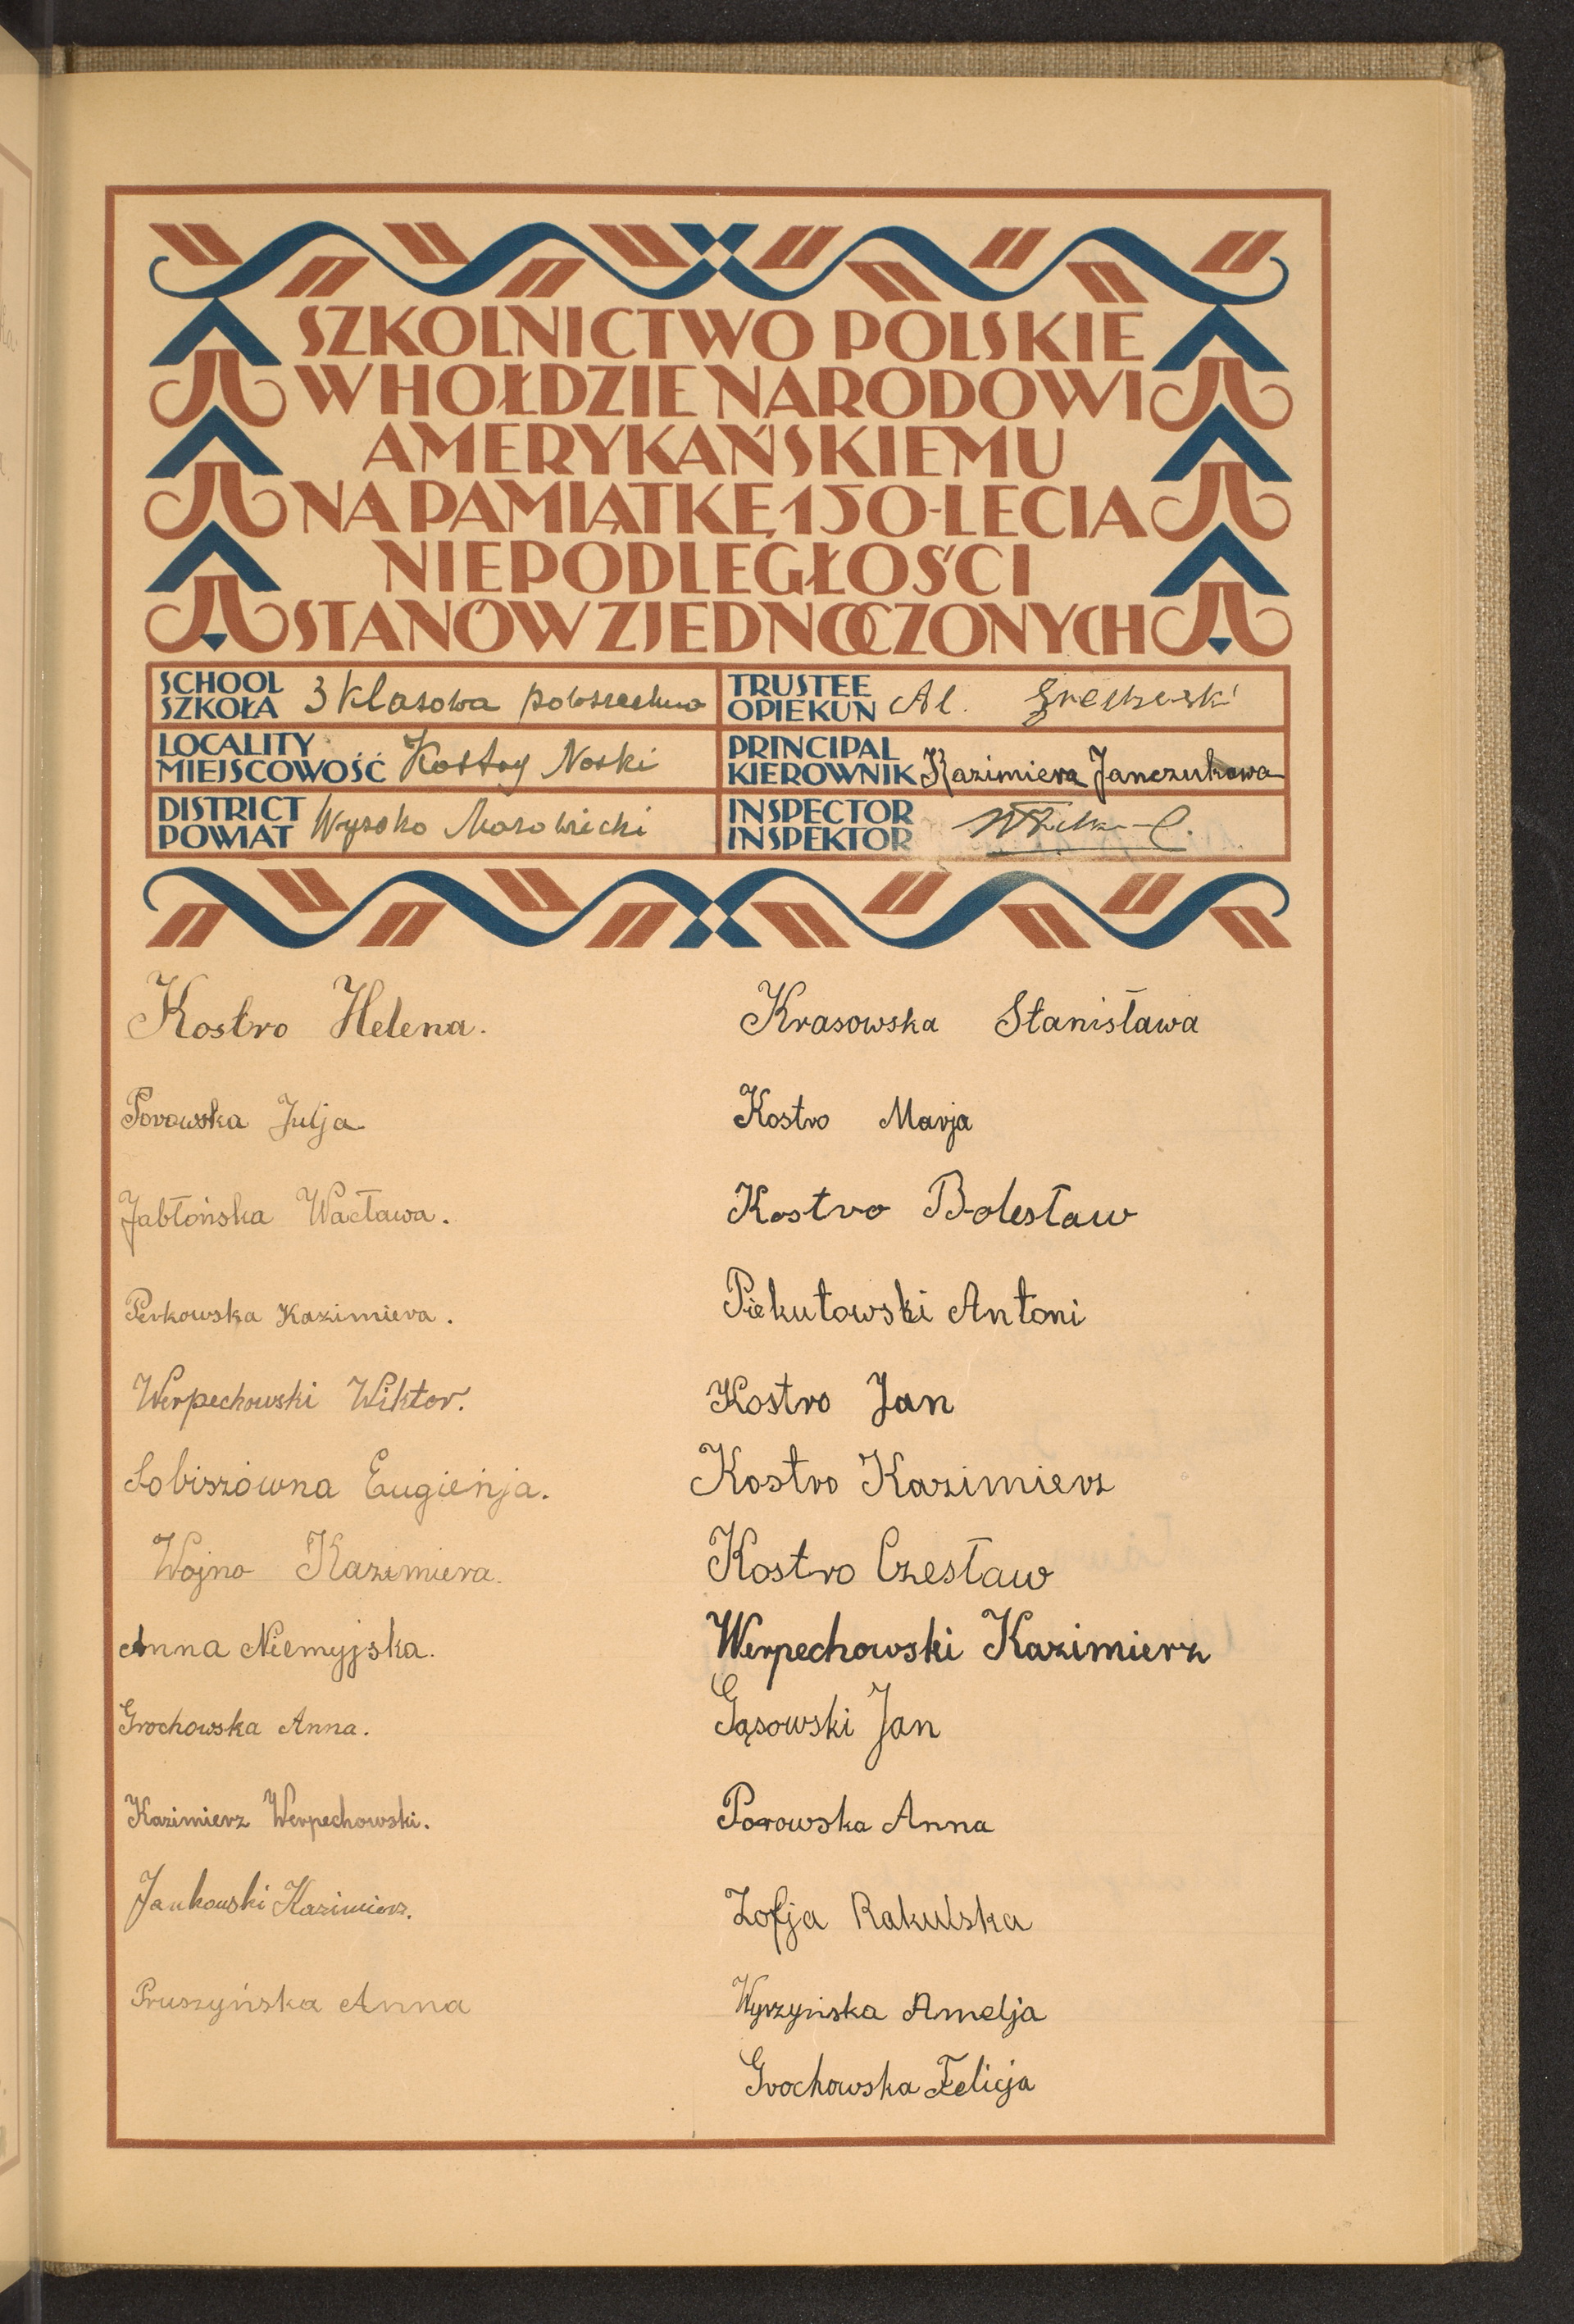 SZKOLNICTWO POLSKIE
W HOŁDZIE NARODOWI
AMERYKAŃSKIEMU
NA PAMIĄTKĘ 150-LECIA
NIEPODLEGŁOŚCI
STANÓW ZJEDNOCZONYCH
SCHOOL
SZKOŁA 3 klasowa powszechna
TRUSTEE
OPIEKUN Al.
LOCALITY
MIEJSCOWOŚĆ Kostry Noski
PRINCIPAL
KIEROWNIK Kazimiera Janczukowa
DISTRICT
POWIAT Wysoko Mazowiecki
INSPECTOR
INSPEKTOR
Kostro Helena.
Porowska Julja
Jabłońska Wacława.
Perkowska Kazimiera.
Werpechowski Wiktor.
Sobiszówna Eugieńja.
Wojno Kazimiera.
Anna Niemyjska.
Grochowska Anna.
Kazimierz Werpechowski.
Jankowski Kazimierz.
Pruszyńska Anna
Krasowska Stanisława
Kostro Marja
Kostro Bolesław
Piekutowski Antoni
Kostro Jan
Kostro Kazimierz
Kostro Czesław
Werpechowski Kazimierz
Gąsowski Jan
Porowska Anna
Zofja Rakulska
Wyrzyńska Amelja
Grochowska Felicja